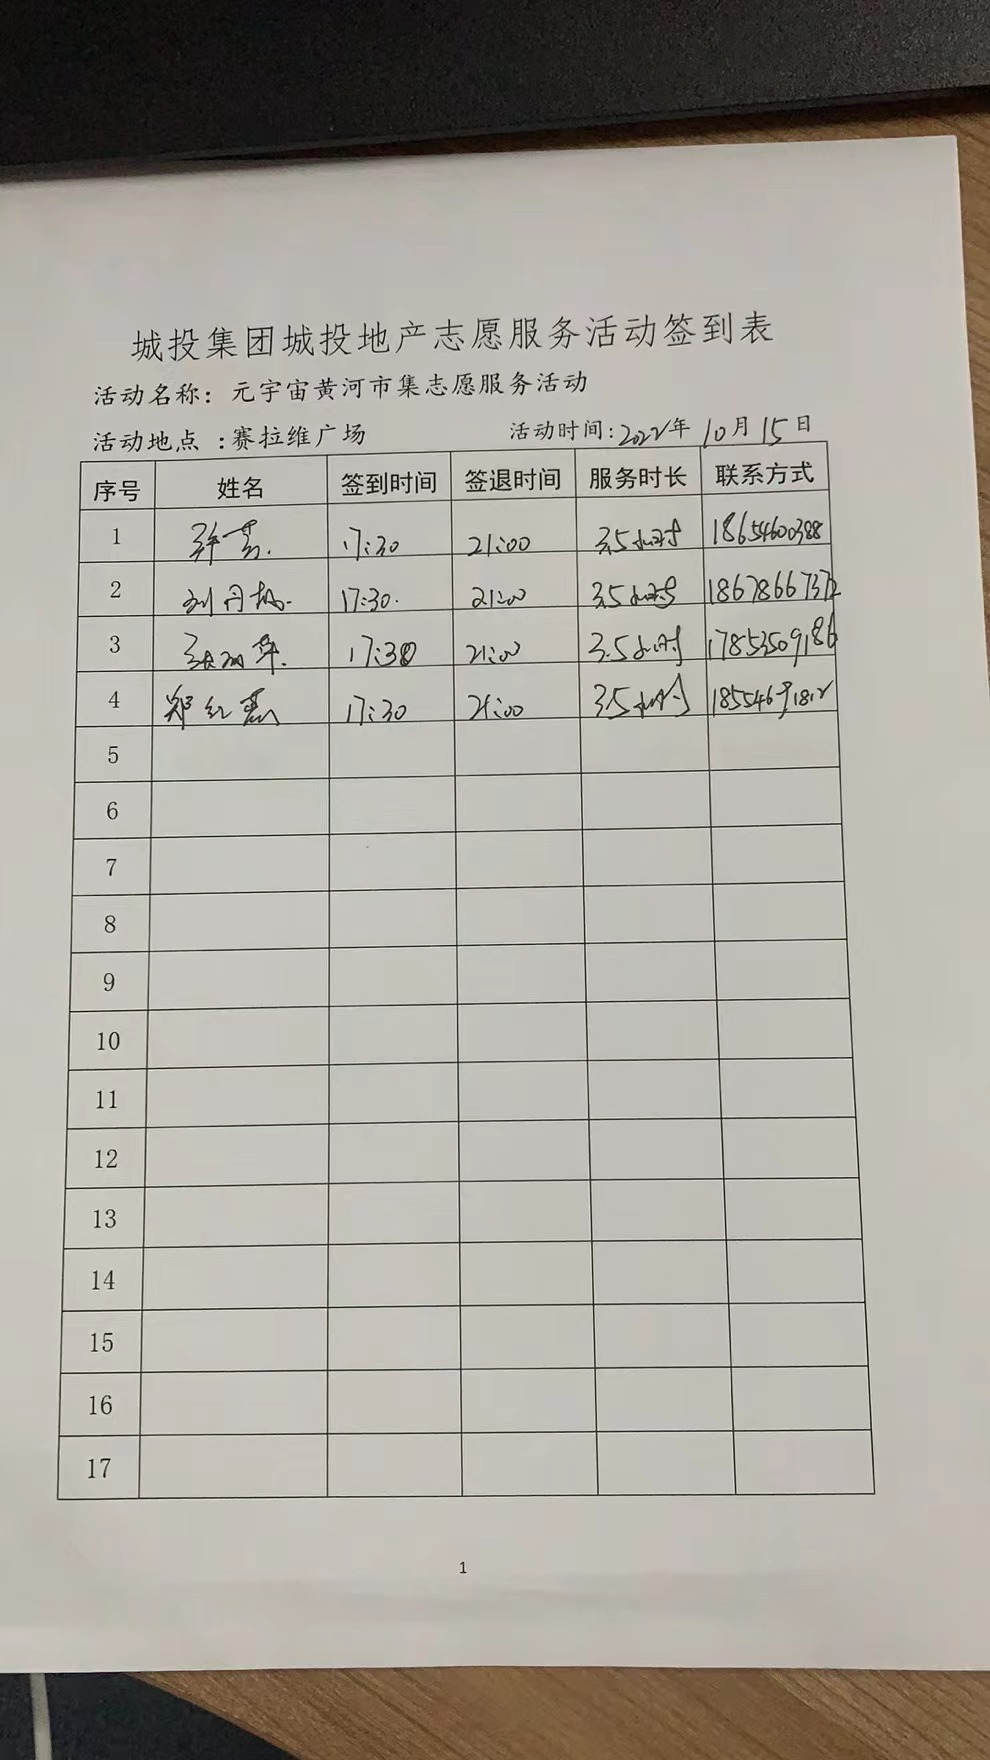 城投集团城投地产志愿服务活动签到表
活动名称：元宇宙黄河市集志愿服务活动
活动地点：赛拉维广场 活动时间：2022年10月15日
序号 姓名 签到时间 签退时间 服务时长 联系方式
1 17:30 21:00 3.5小时 18654600388
2 刘丹 17:30. 21:00 3.5小时 18678667372
3 17:30 21:00 3.5小时 17853509186
4 郑红 17:30 21:00 3.5小时
5
6
7
8
9
10
11
12
13
14
15
16
17
1